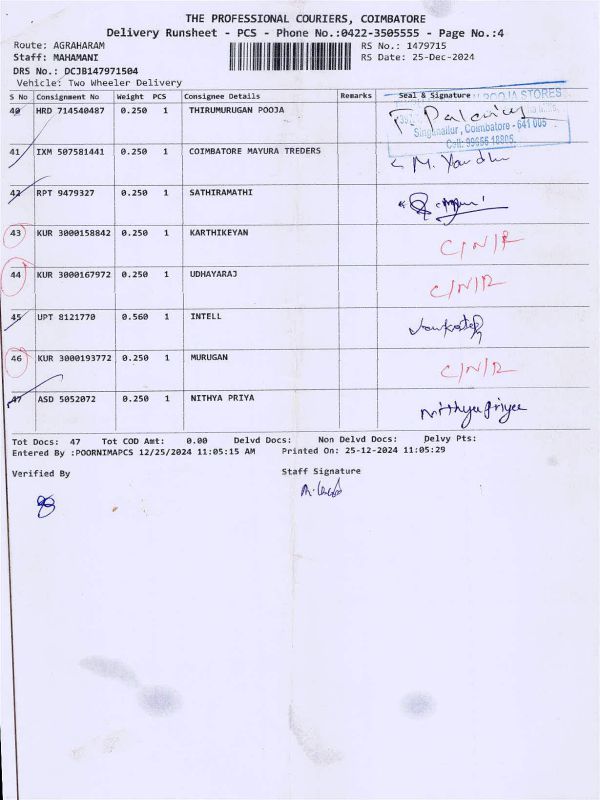 THE PROFESSIONAL COURIERS, COIMBATORE
Delivery Runsheet - PCS - Phone No.:0422-3505555 - Page No.:4
Route: AGRAHARAM RS No.: 1479715
Staff: MAHAMANI RS Date: 25-Dec-2024
DRS No.: DCJB147971504
Vehicle: Two Wheeler Delivery
S No Consignment No Weight PCS Consignee Details Remarks Seal & Signature
POOJA STORES
40 HRD 714540487 0.250 1 THIRUMURUGAN POOJA
Singanallur, Coimbatore - 641 005
Cell: 99656 18805
41 IXM 507581441 0.250 1 COIMBATORE MAYURA TREDERS
42 RPT 9479327 0.250 1 SATHIRAMATHI
43 KUR 3000158842 0.250 1 KARTHIKEYAN C/N/R
44 KUR 3000167972 0.250 1 UDHAYARAJ C/N/R
45 UPT 8121770 0.560 1 INTELL
46 KUR 3000193772 0.250 1 MURUGAN C/N/R
47 ASD 5052072 0.250 1 NITHYA PRIYA Nithyapriya
Tot Docs: 47 Tot COD Amt: 0.00 Delvd Docs: Non Delvd Docs: Delvy Pts:
Entered By :POORNIMAPCS 12/25/2024 11:05:15 AM Printed On: 25-12-2024 11:05:29
Verified By Staff Signature